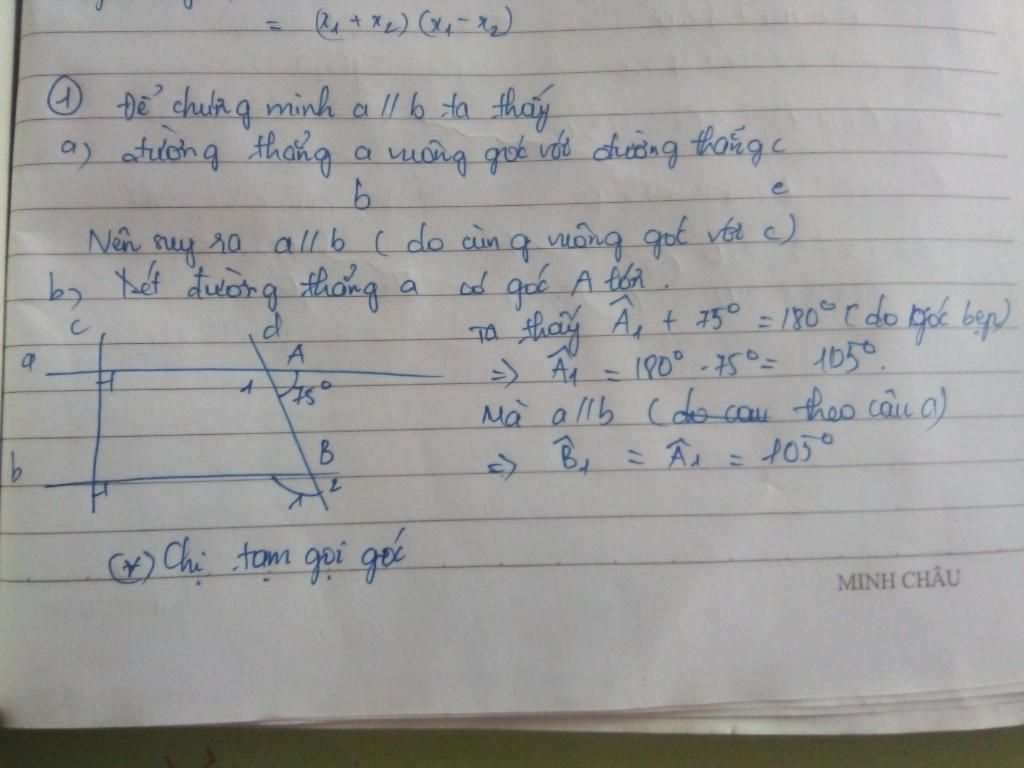 = (x₁ + x₂) (x₁ - x₂)
① Để chứng minh a // b ta thấy
a) đường thẳng a vuông góc với đường thẳng c
b e
Nên suy ra a // b ( do cùng vuông góc với c)
b) Xét đường thẳng a có góc A
ta thấy Â₁ + 75° = 180° ( do góc bẹp)
=> Â₁ = 180° - 75° = 105°.
Mà a // b ( do cau theo câu a)
=> B̂₁ = Â₁ = 105°
c d
a A
1 75°
b B
1 2
(*) Chị tạm gọi góc
MINH CHÂU